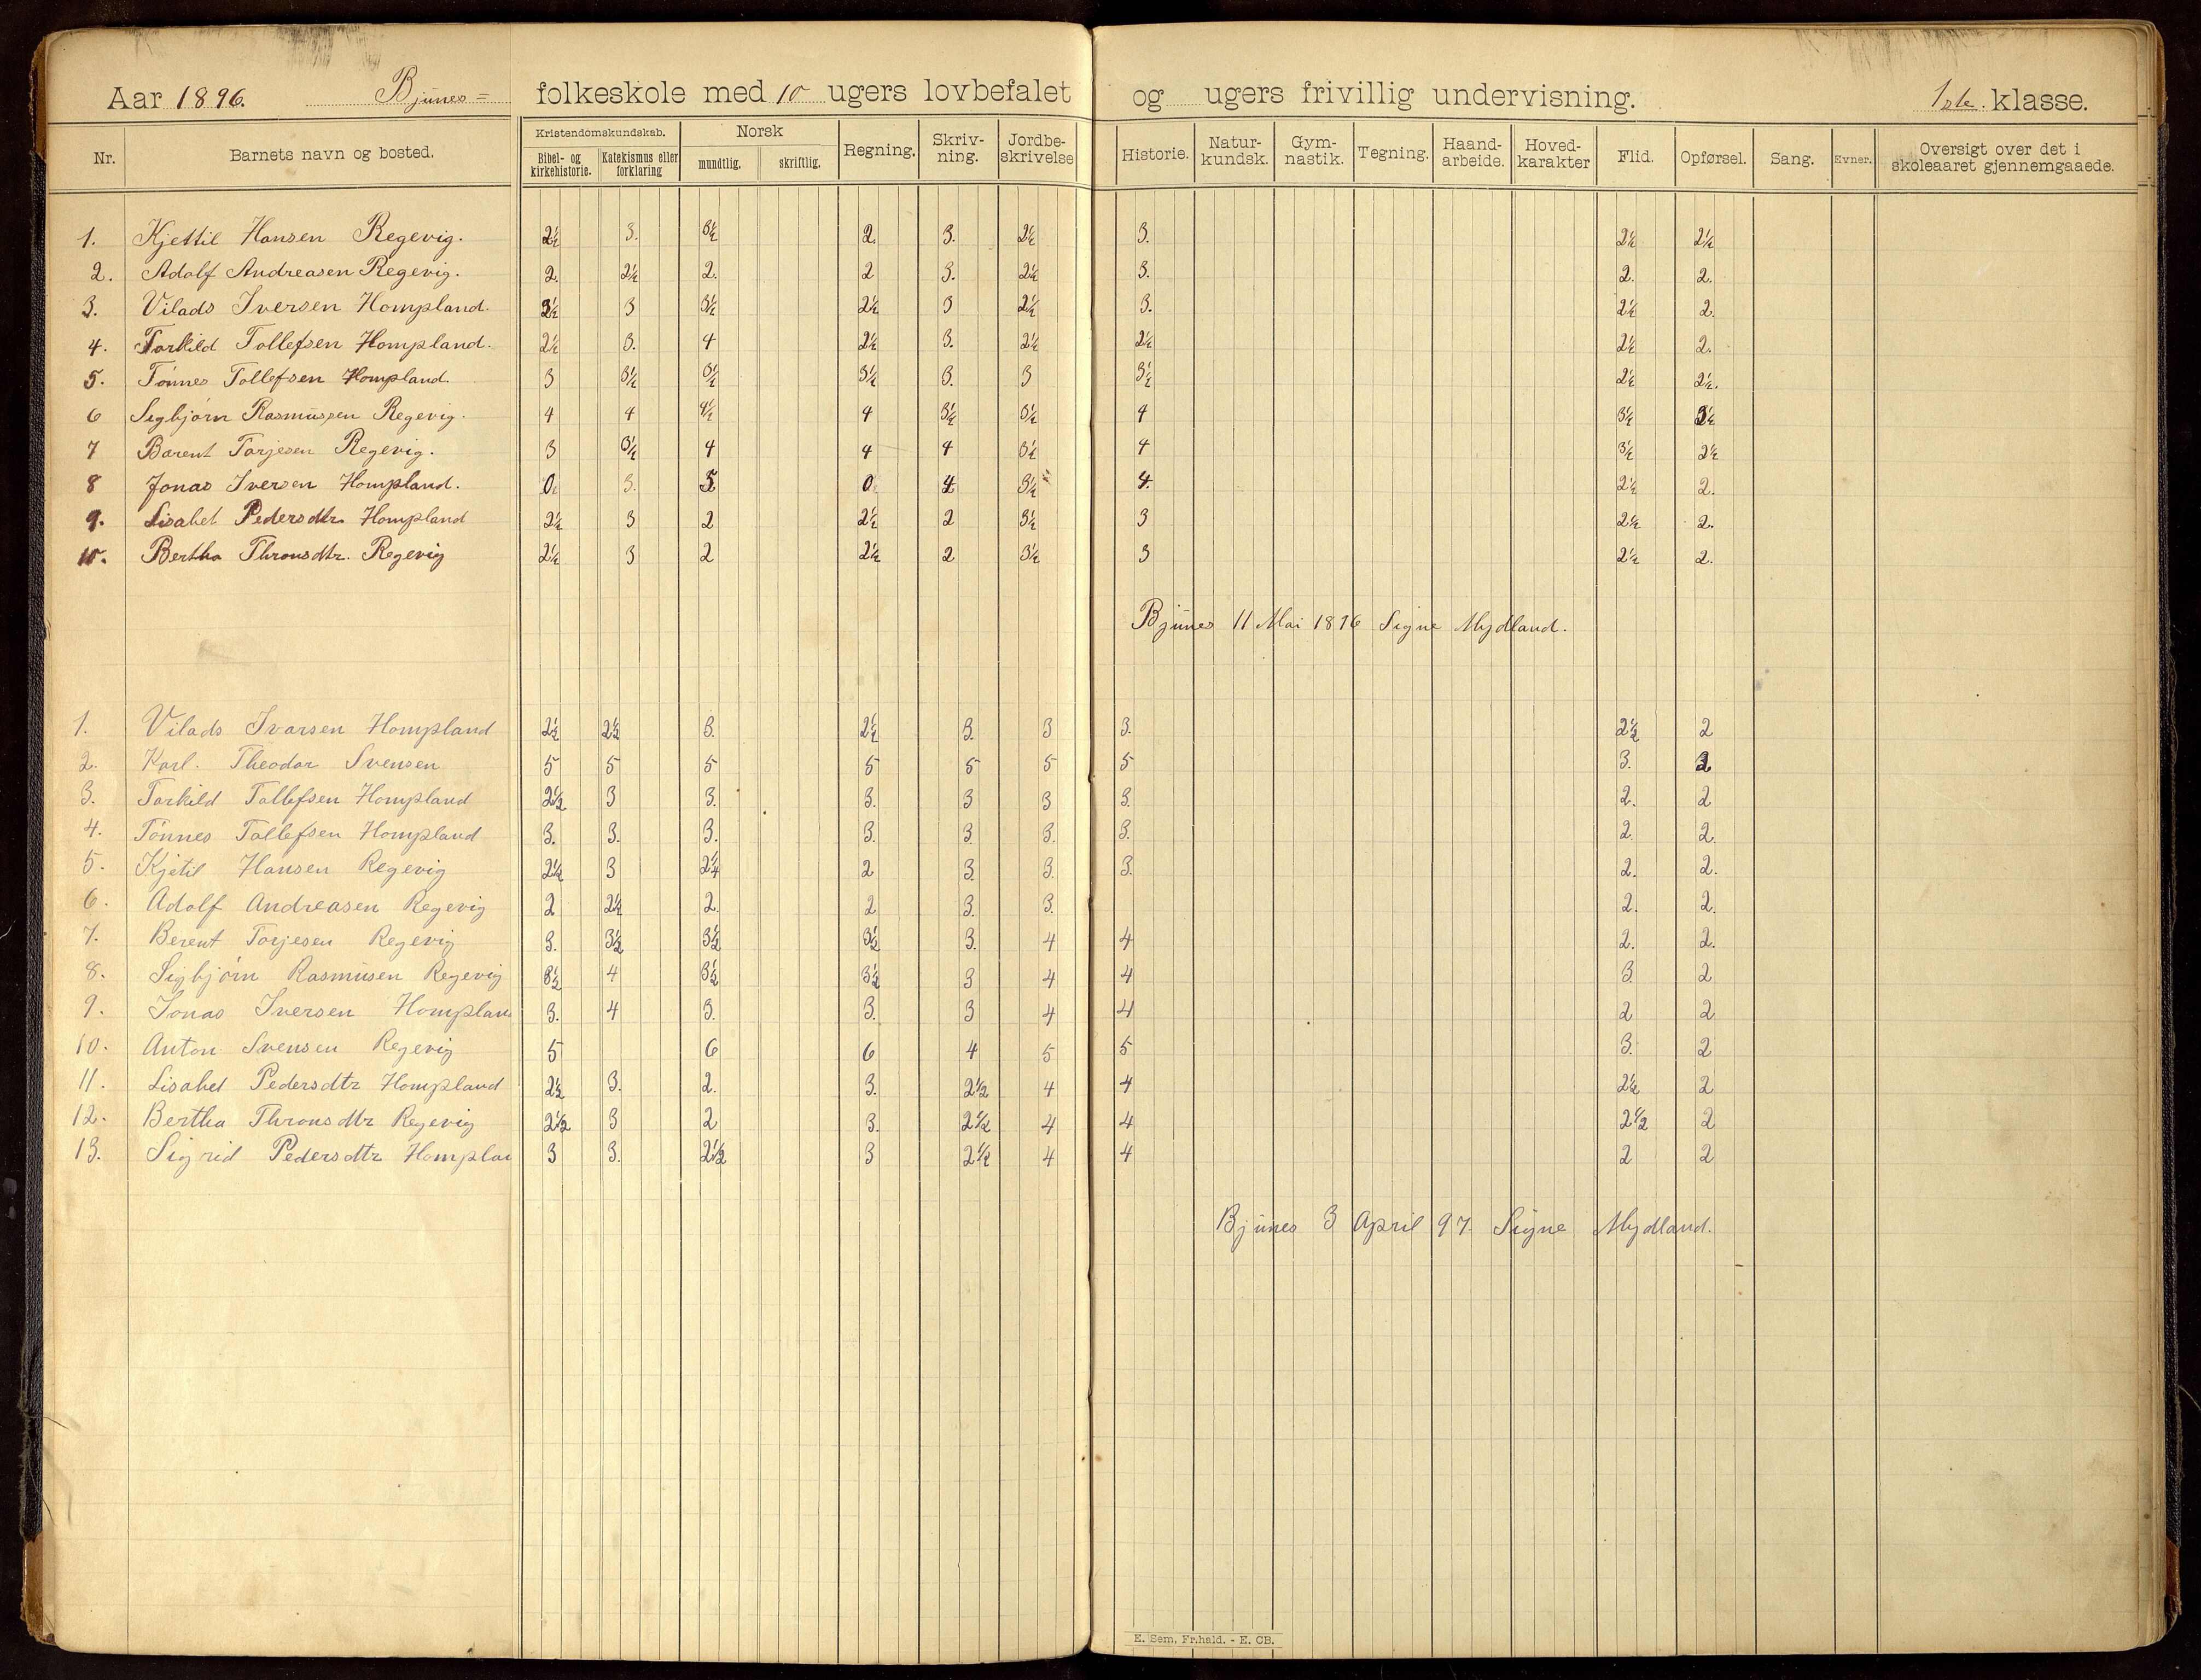 Aar 1896. Bjünes= folkeskole med 10 ugers lovbefalet og ugers frivillig undervisning. 1ste. klasse.
Nr. Barnets navn og bosted. Kristendomskundskab. Bibel- og kirkehistorie. Katekismus eller forklaring Norsk mundtlig. skriftlig. Regning. Skriv-ning. Jordbe-skrivelse Historie. Natur-kundsk. Gym-nastik. Tegning. Haand-arbeide. Hoved-karakter Flid. Opførsel. Sang. Evner. Oversigt over det i skoleaaret gjennemgaaede.
1. Kjettil Hansen Regevig. 2½ 3. 3½ 2. 3. 2½ 3. 2½ 2½
2. Adolf Andreasen Regevig. 2. 2½ 2. 2 3. 2½ 3. 2. 2.
3. Vilads Iversen Hompland. 2½ 3 3½ 2½ 3 2½ 3. 2½ 2.
4. Torkild Tollefsen Hompland. 2½ 3. 4 2½ 3. 2½ 2½ 2½ 2.
5. Tönnes Tollefsen Hompland. 3 3½ 3½ 3½ 3. 3 3½ 2½ 2½.
6 Segbjörn Rasmüssen Regevig. 4 4 4½ 4 3½ 3½ 4 3½ 3½
7 Barent Torjesen Regevig. 3 3½ 4 4 4 3½ 4 3½ 2½
8 Jonas Iversen Hompland. 0. 3. 5 0. 4 3½ 4. 2½ 2.
9. Lisabet Pedersdtr. Hompland 2½ 3 2 2½ 2 3½ 3 2½ 2.
10. Bertha Thronsdtr. Regevig 2½ 3 2 2½ 2 3½ 3 2½ 2.
Bjünes 11 Mai 1896 Signe Mydland.
1. Vilads Ivarsen Hompland 2½ 2½ 3. 2½ 3. 3 3. 2½ 2
2. Karl. Theodor Svensen 5 5 5 5 5 5 5 3. 2
3. Torkild Tollefsen Hompland 2½ 3 3. 3. 3 3 3. 2. 2
4. Tönnes Tollefsen Hompland 3. 3. 3. 3. 3. 3. 3. 2. 2.
5. Kjetil Hansen Regevig 2½ 3 2¼ 2 3. 3. 3. 2. 2.
6. Adolf Andreasen Regevig 2 2½ 2. 2 3. 3. 2. 2.
7. Berent Torjesen Regevig 3. 3½ 3½ 3½ 3. 4 4 2. 2.
8. Sigbjörn Rasmüsen Regevig 3½ 4 3½ 3½ 3 4 4 3. 2
9. Jonas Iversen Hompland 3. 4 3. 3. 3 4 4 2 2
10. Anton Svensen Regevig 5 6 6 4 5 5 3. 2
11. Lisabet Pedersdtr Hompland 2½ 3. 2. 3. 2½ 4 4 2½ 2
12. Bertha Thronsdtr Regevig 2½ 3 2 3. 2½ 4 4 2½ 2
13. Sigrid Pedersdtr Homplan 3 3. 2½ 3 2½ 4 4 2 2
Bjünes 3 April 97. Signe Mydland.
E. Sem, Fr.hald. - E. CB.